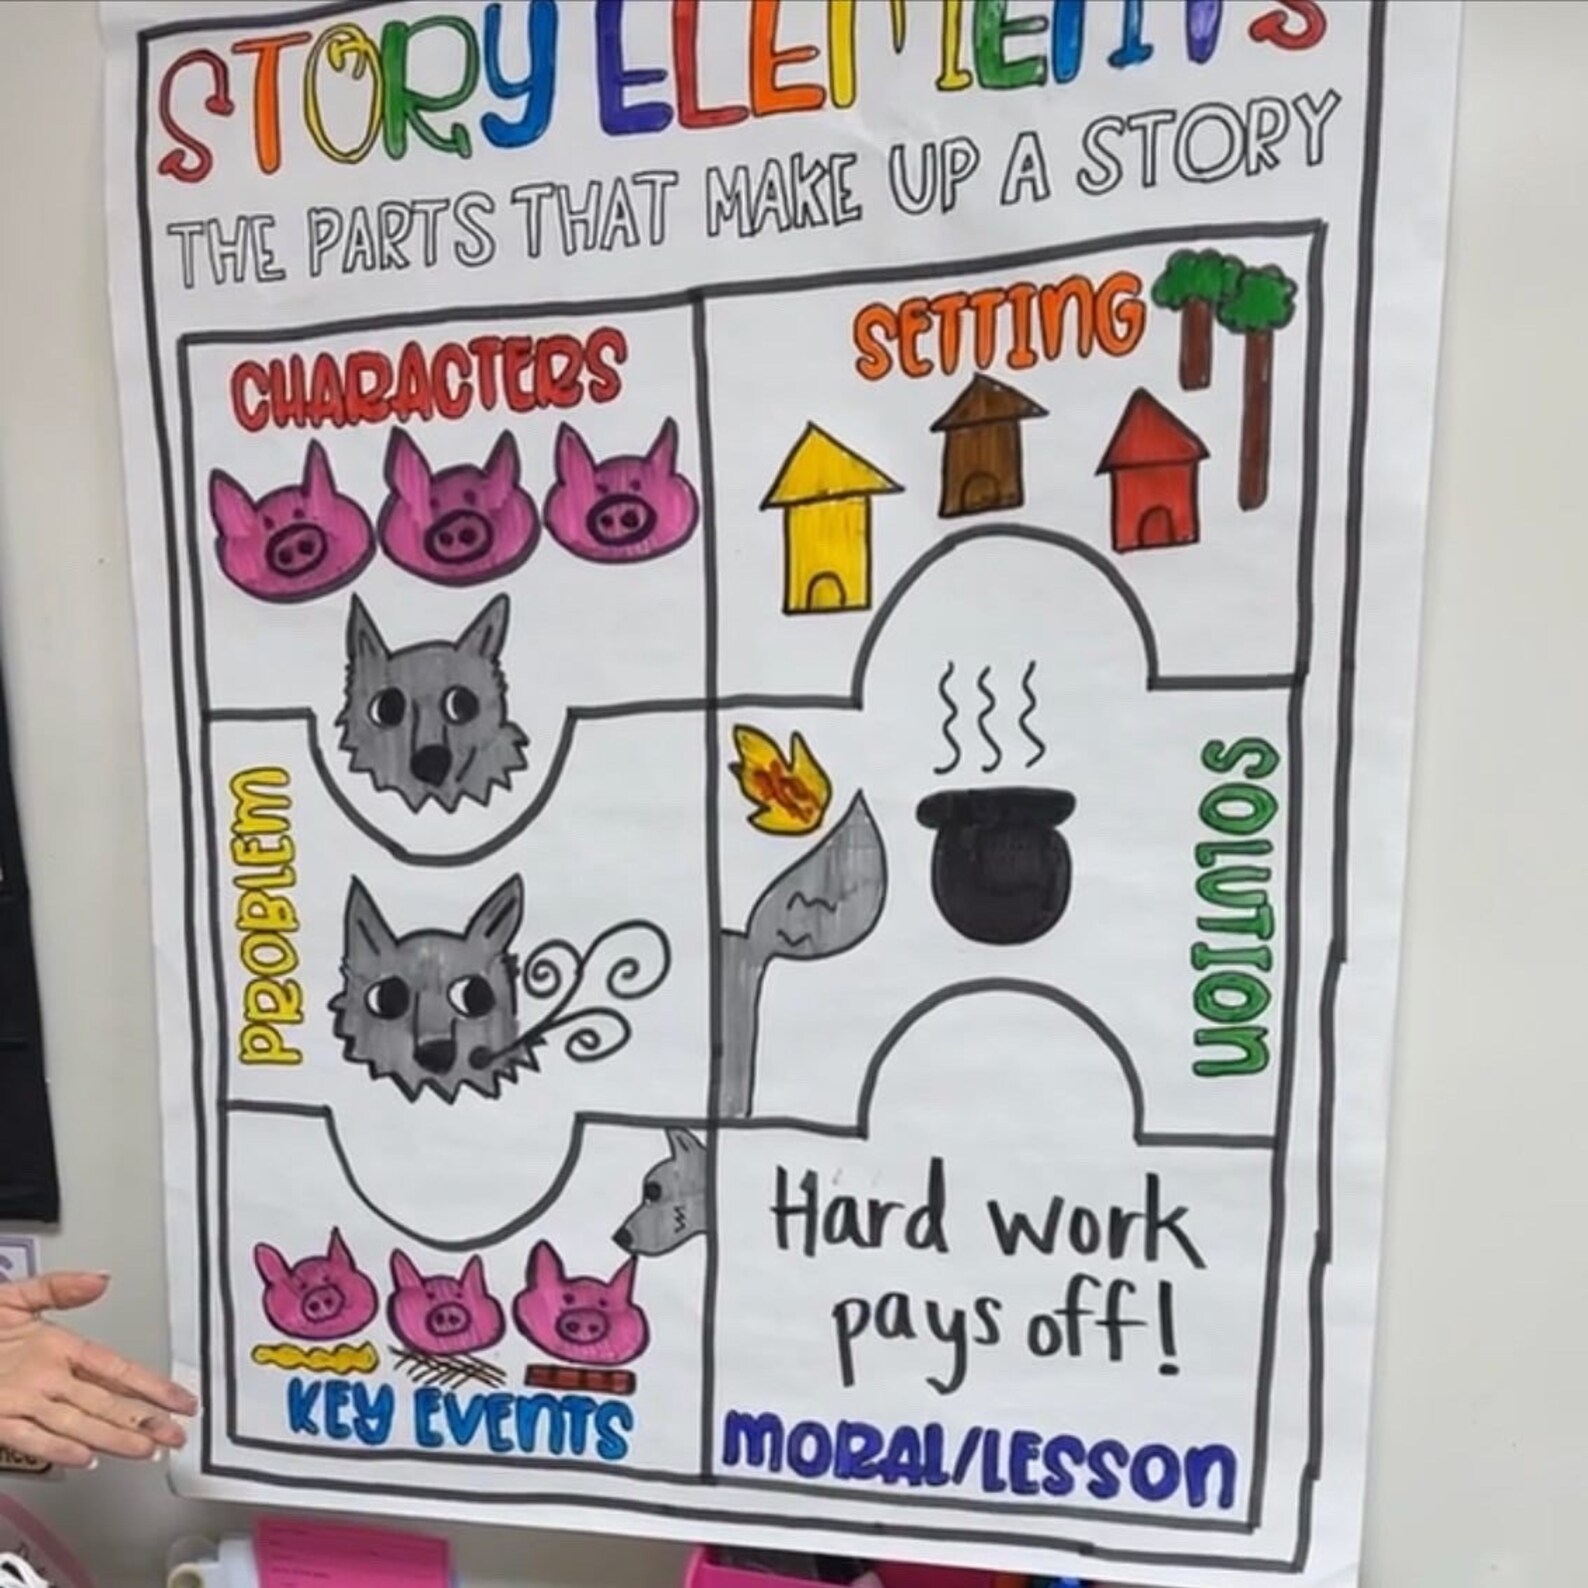 STORY ELEMENTS
THE PARTS THAT MAKE UP A STORY
CHARACTERS
SETTING
PROBLEM
SOLUTION
KEY EVENTS
Hard work
pays off!
MORAL/LESSON